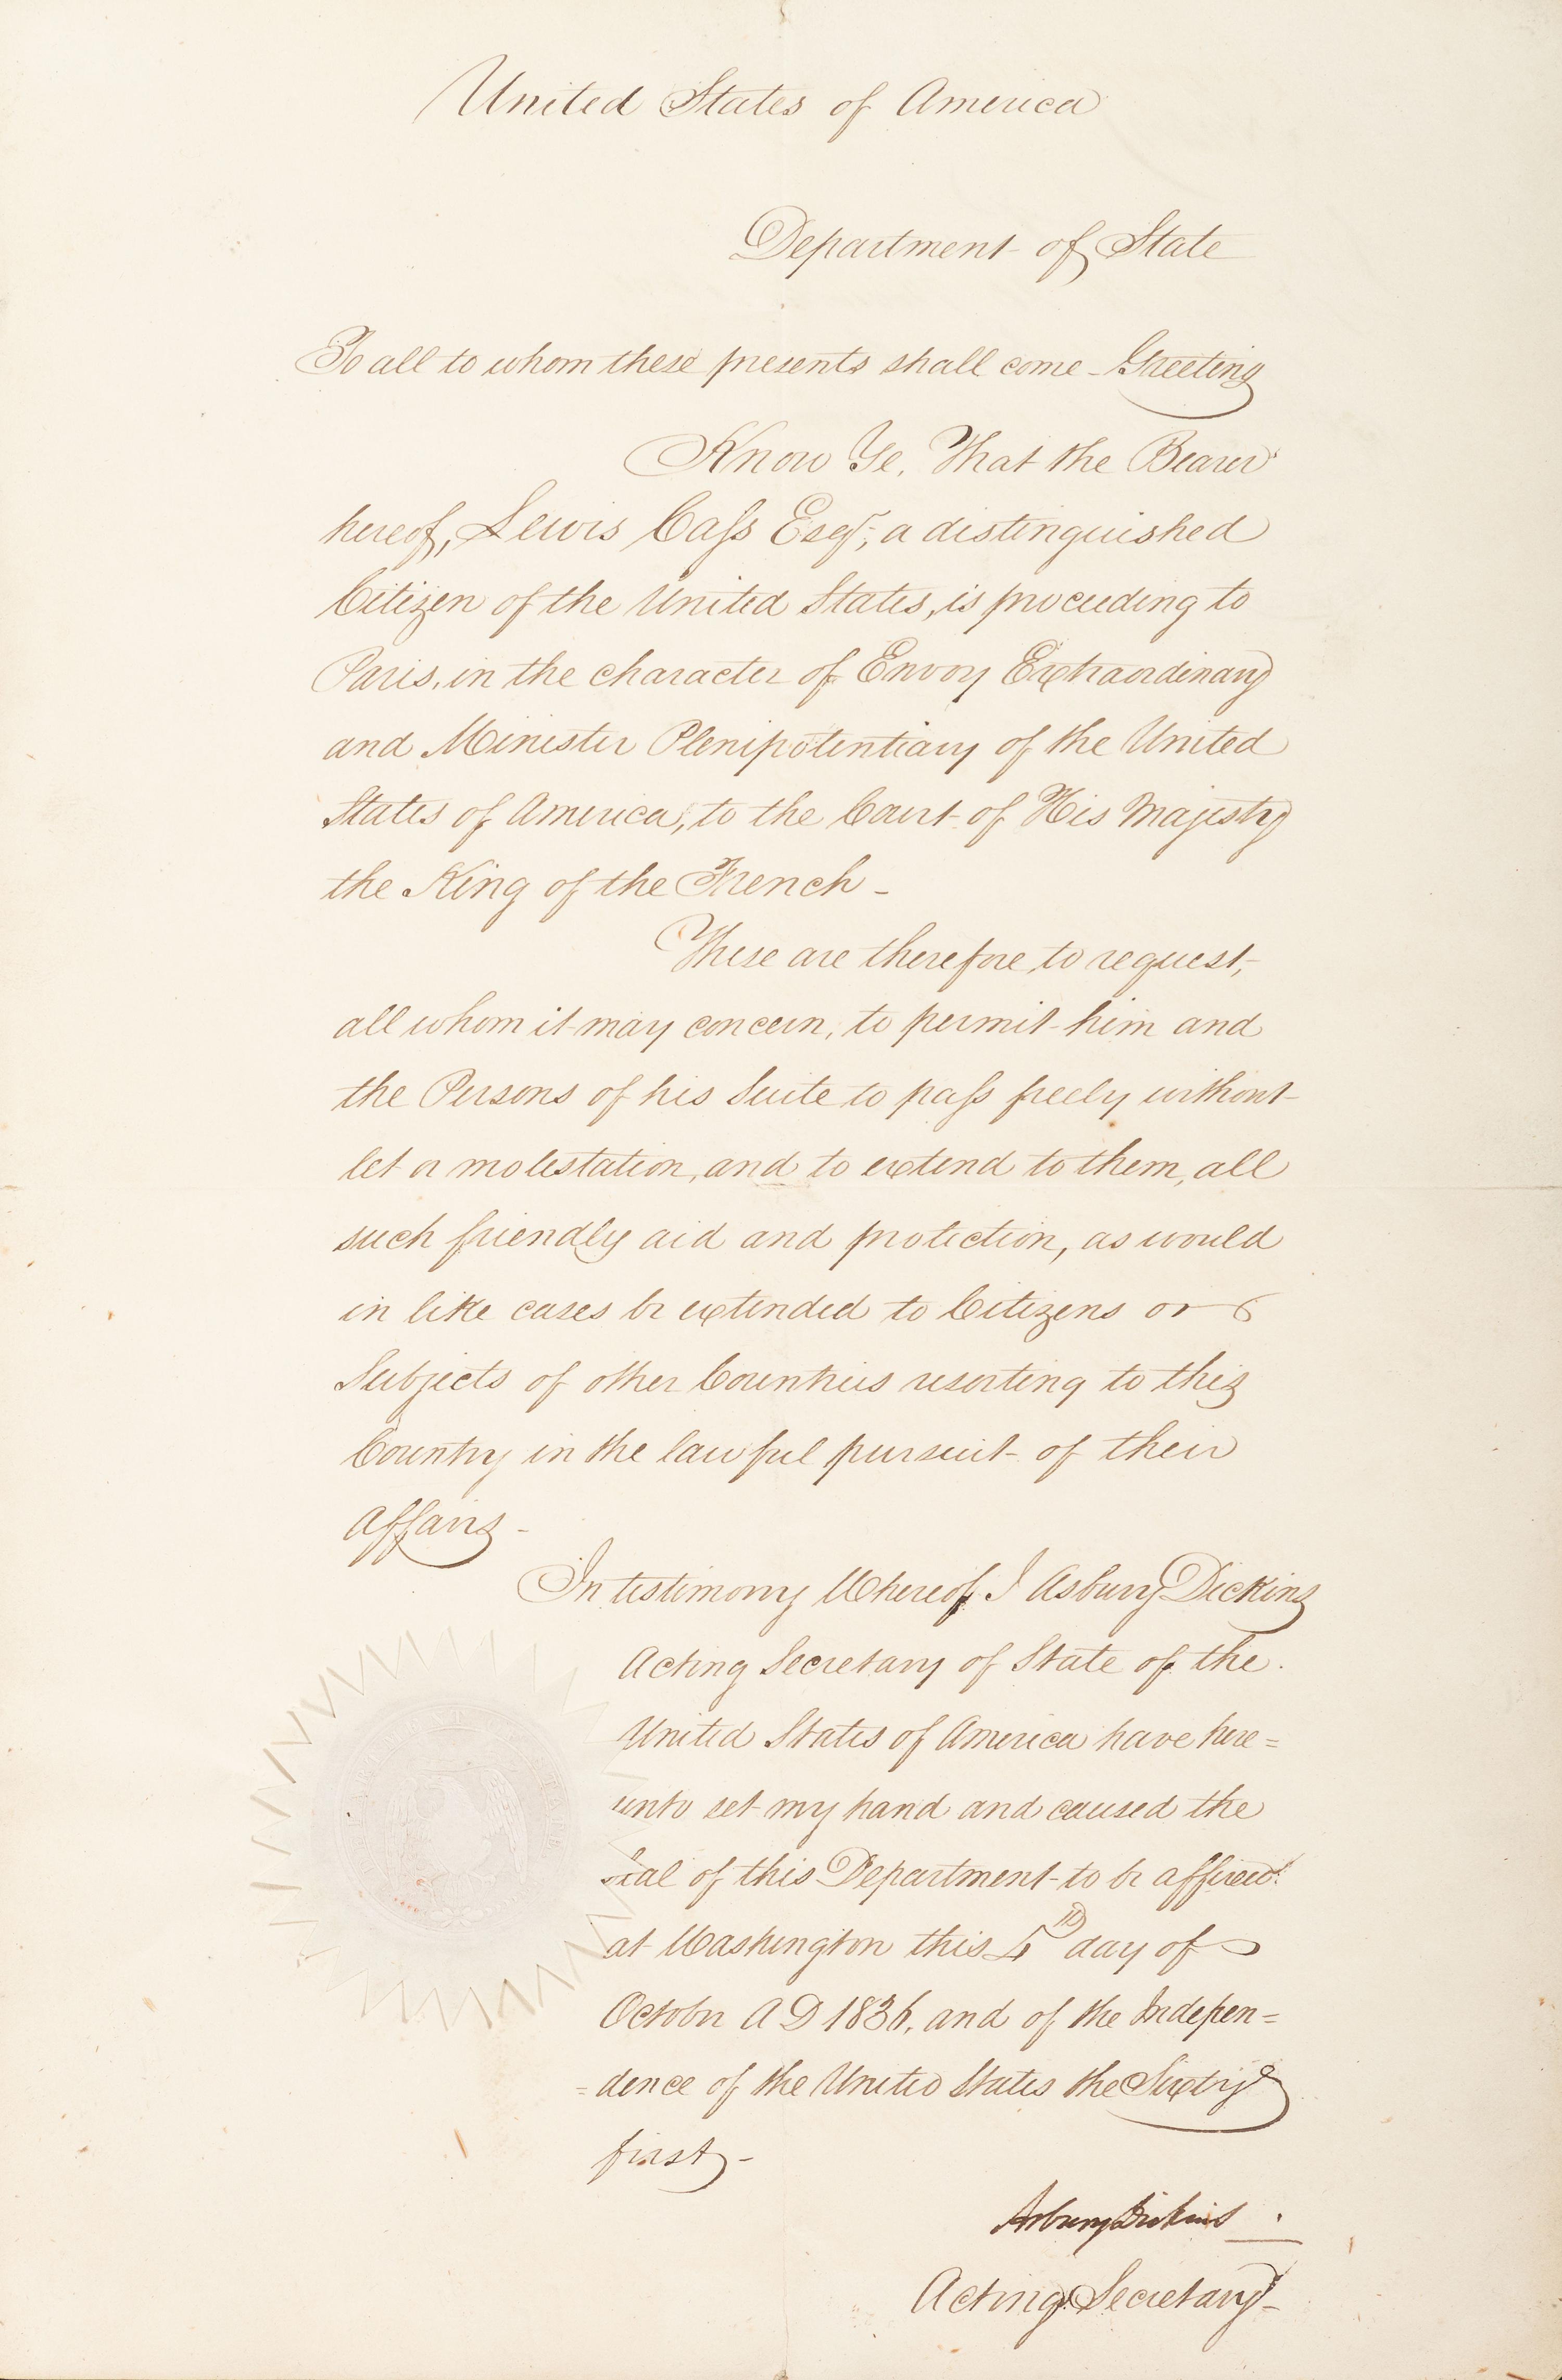 United States of America
Department of State
To all to whom these presents shall come - Greeting
Know Ye, That the Bearer
hereof, Lewis Caſs Esqr; a distinguished
Citizen of the United States, is proceeding to
Paris, in the character of Envoy Extraordinary
and Minister Plenipotentiary of the United
States of America, to the Court of His Majesty
the King of the French -
These are therefore to request,
all whom it may concern, to permit him and
the Persons of his Suite to paſs freely without
let or molestation, and to extend to them, all
such friendly aid and protection, as would
in like cases be extended to Citizens or
Subjects of other Countries resorting to this
Country in the lawful pursuit of their
affairs -
In testimony Whereof, I Asbury Dickins
Acting Secretary of State of the
United States of America have here=
unto set my hand and caused the
Seal of this Department to be affixed
at Washington this 4th day of
October A D 1836, and of the Indepen=
=dence of the United States the Sixty
first -
Asbury Dickins
Acting Secretary